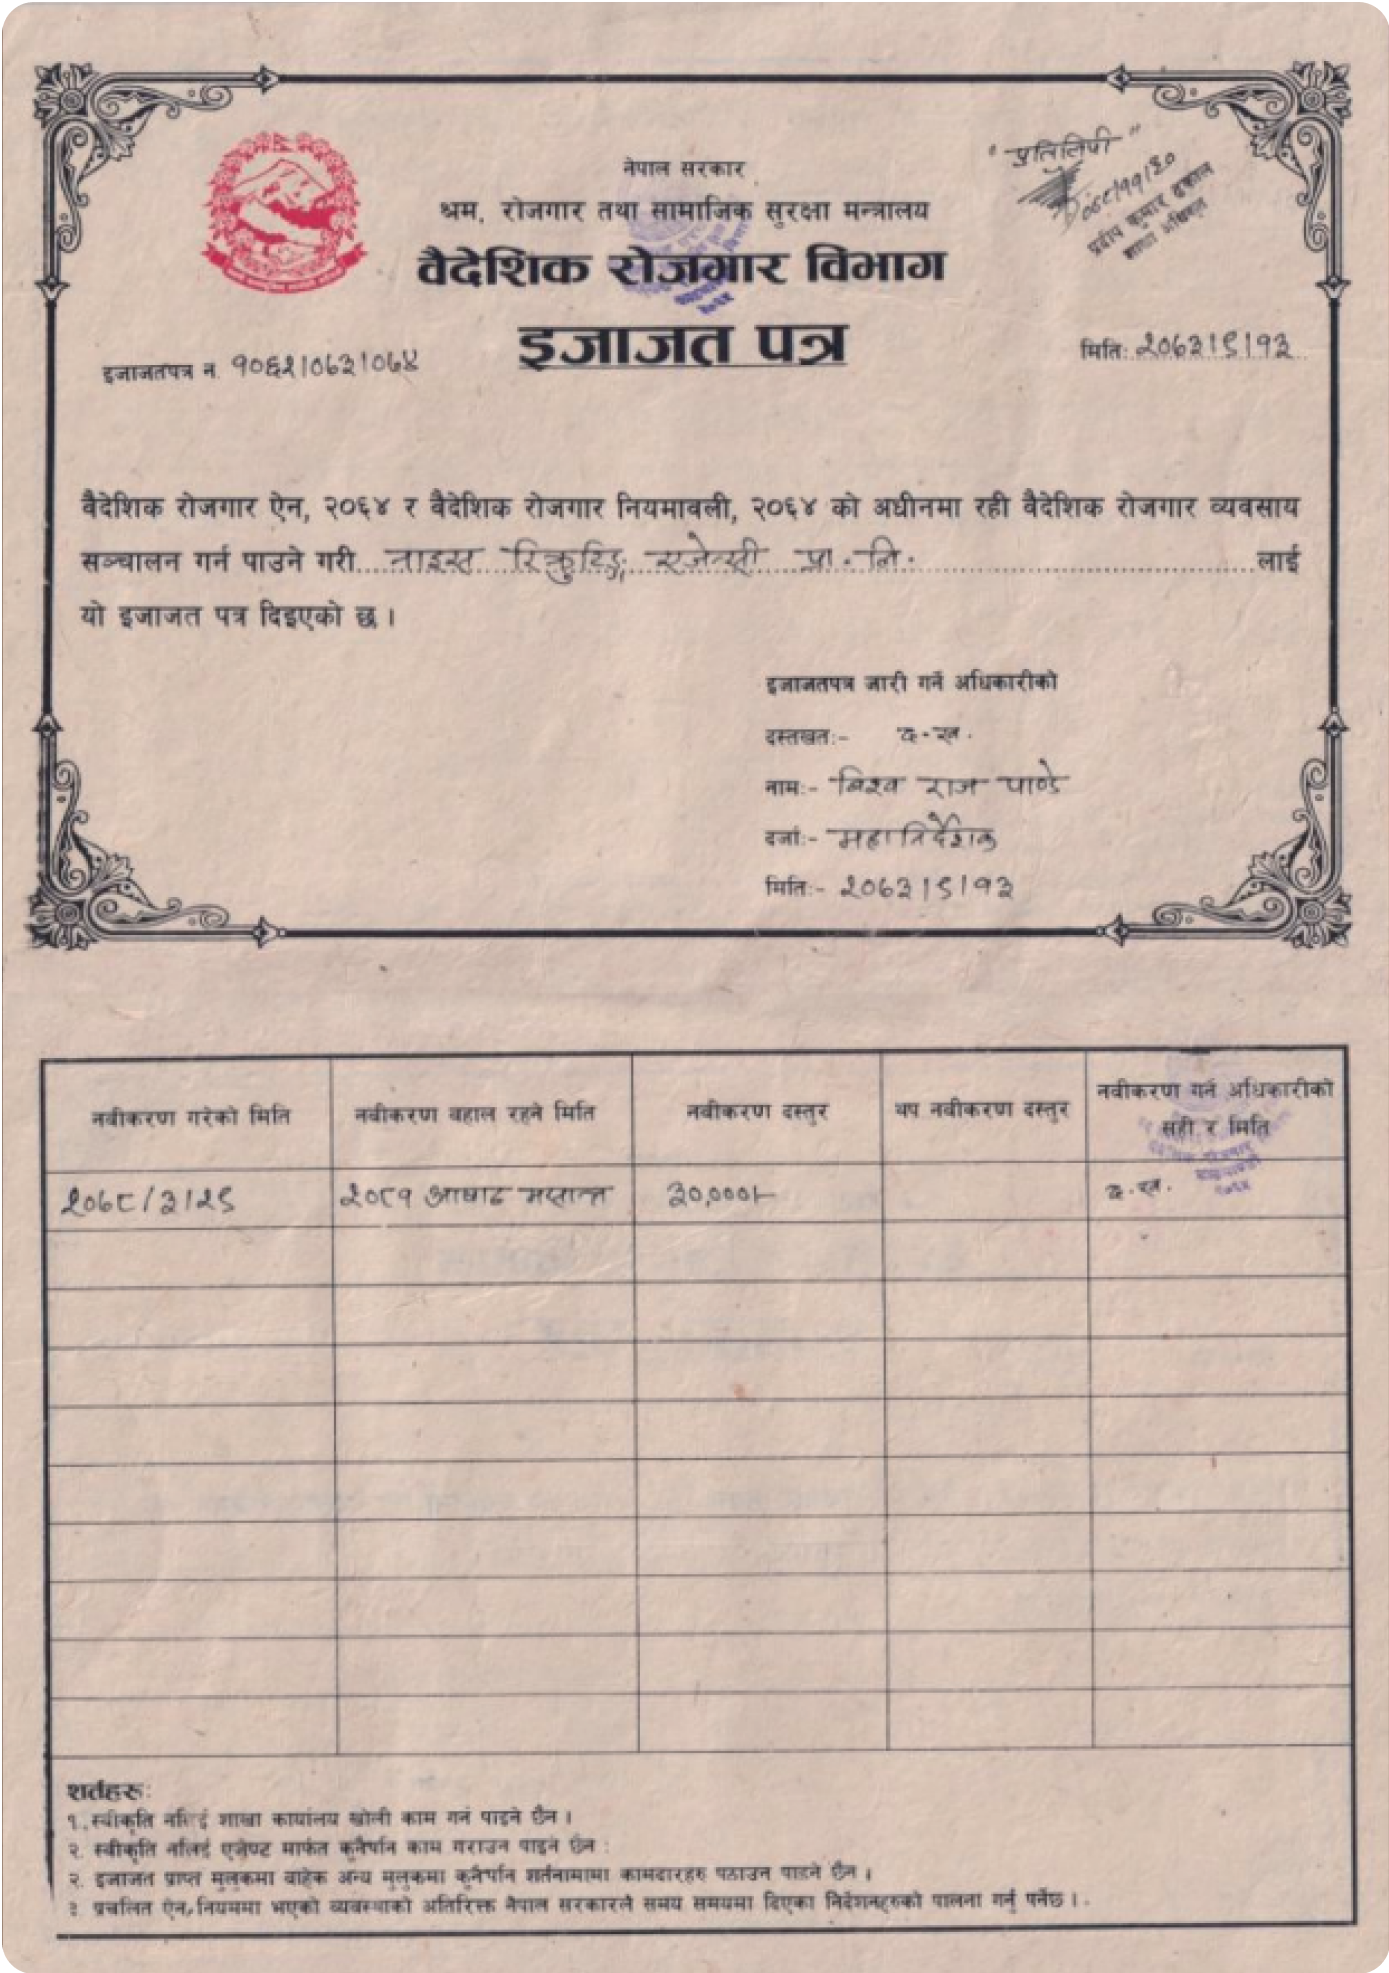 "प्रतिलिपी"
नेपाल सरकार
श्रम, रोजगार तथा सामाजिक सुरक्षा मन्त्रालय
प्रदीप कुमार ढकाल
शाखा अधिकृत
वैदेशिक रोजगार विभाग
इजाजत पत्र
इजाजतपत्र न. १०६२।०६३।०६४
मिति: २०६३।९।१३
वैदेशिक रोजगार ऐन, २०६४ र वैदेशिक रोजगार नियमावली, २०६४ को अधीनमा रही वैदेशिक रोजगार व्यवसाय
सञ्चालन गर्न पाउने गरी नाइस रिक्रुटिङ्ग एजेन्सी प्रा. लि. लाई
यो इजाजत पत्र दिइएको छ ।
इजाजतपत्र जारी गर्ने अधिकारीको
दस्तखत:- द.ख.
नाम:- विश्व राज पाण्डे
दर्जा:- महानिर्देशक
मिति:- २०६३।९।१३
नवीकरण गरेको मिति नवीकरण वहाल रहने मिति नवीकरण दस्तुर थप नवीकरण दस्तुर नवीकरण गर्ने अधिकारीको सही र मिति
२०७८/३/२९ २०८१ आषाढ मसान्त ३०,०००।- द.ख.
शर्तहरु:
१. स्वीकृति नलिई शाखा कार्यालय खोली काम गर्न पाइने छैन ।
२. स्वीकृति नलिई एजेण्ट मार्फत कुनैपनि काम गराउन पाइने छैन :
२. इजाजत प्राप्त मुलुकमा वाहेक अन्य मुलुकमा कुनैपनि शर्तनामामा कामदारहरु पठाउन पाइने छैन ।
३. प्रचलित ऐन, नियममा भएको व्यवस्थाको अतिरिक्त नेपाल सरकारले समय समयमा दिएका निर्देशनहरुको पालना गर्नु पर्नेछ ।